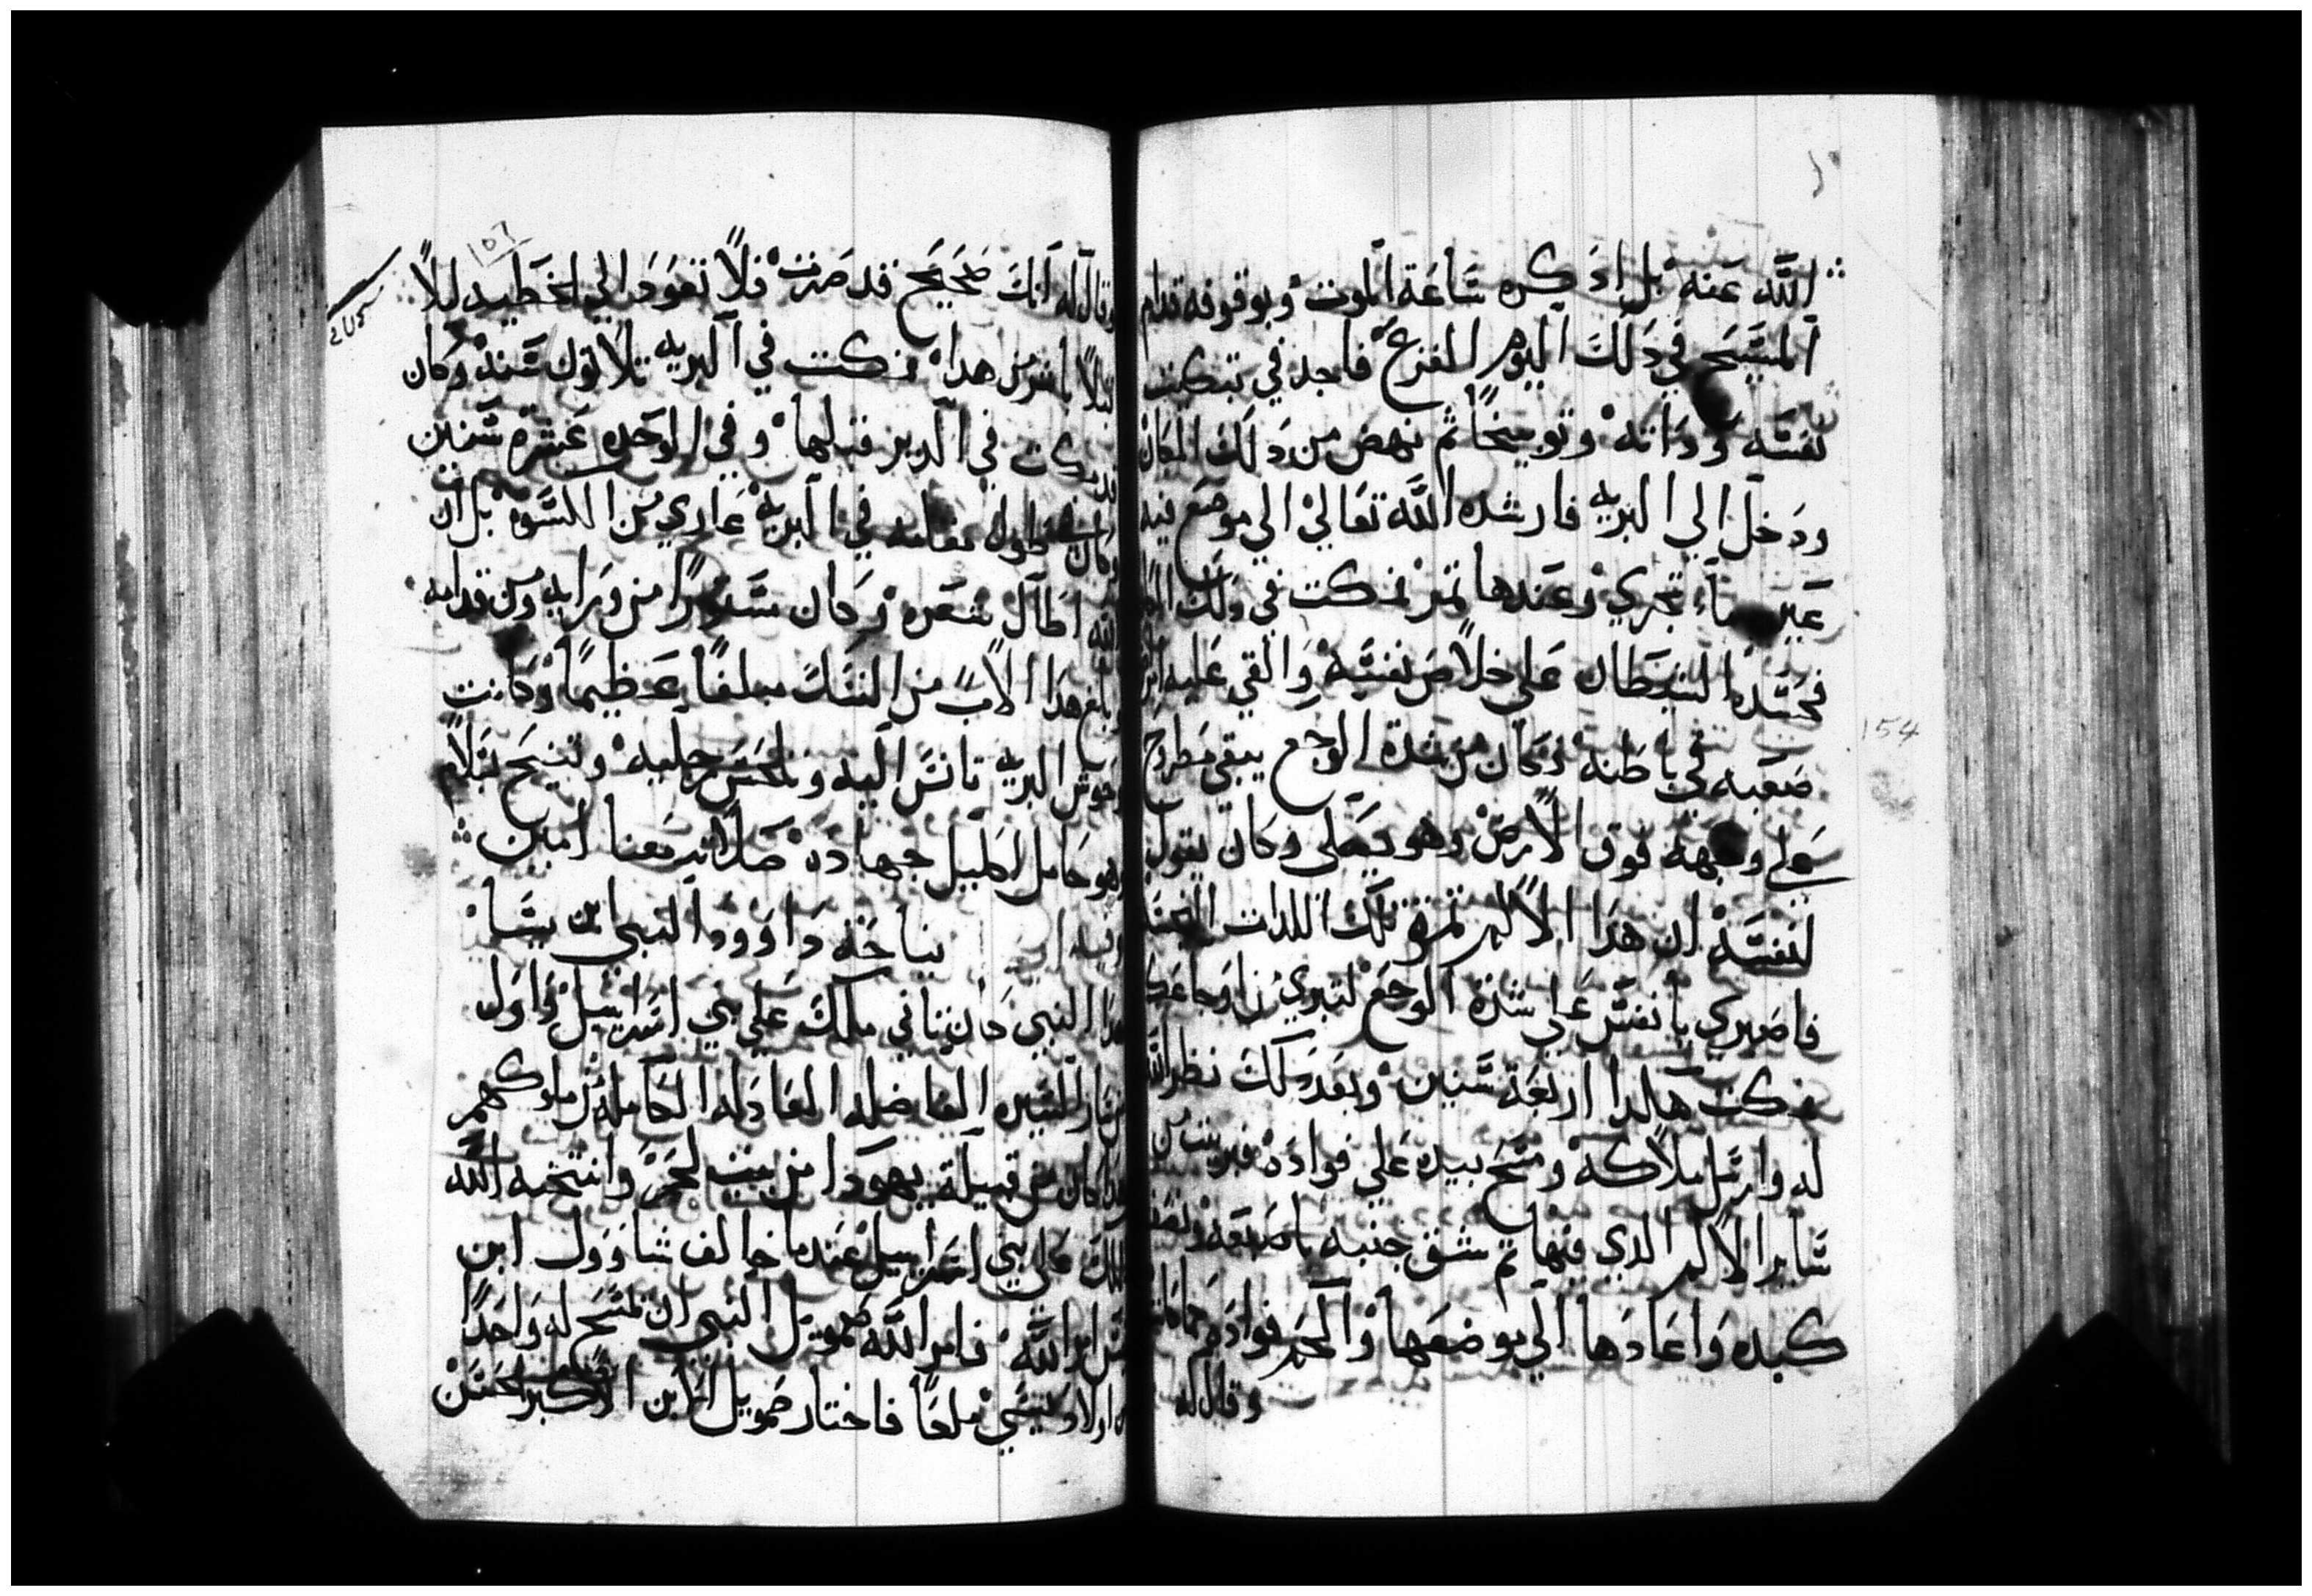 الله عنه بل اذكره ساعة الموت وبوقوفه قدام
المسيح في دلك اليوم المفزع فاجد في تبكيت
نفسه وداته وتوبيخا ثم نهض من دلك المكان
ودخل الي البريه فارشده الله تعالي الي موضع فيه
عين ماء تجري وعندها تمر فمكت في دلك
فحسده الشيطان علي خلاص نفسه والقي عليه
صعبه في باطنه وكان من شدة الوجع يبقي مطروح
علي وجهه فوق الارض وهو يصلي وكان يقول
لنفسه ان هدا الالم تمرة تلك اللدات
فاصبري يا نفس علي شدة الوجع لتبري
فمكت هكدا اربعة سنين وبعد دلك نظر الله
له وارسل ملاكه ومسح بيده علي فواده
ساير الالم الدي فيها تم شق جنبه باصبعه
كبده واعادها الي موضعها والحم فواده
وقال له
154
وقال له انك صحيح قد صرت فلا تعود الي الخطيه ليلا
ليلا من هدا فمكت في البريه تلاتون سنه وكان
في الدير قبلها وفي الوحده عشرة سنين
وكان في البريه عاري من الكسوه بل ان
الله اطال شعره وكان ستورا من ورايه ومن قدامه
هدا الاب من النسك مبلغا عظيما وكانت
وحوش البريه تانس اليه وتلحس رجليه وتنيح بسلام
وهو حامل اكليل جهاده صلاته معنا امين
وفيه نياحة داوود النبي ابن يسا
هدا النبي كان تاني ملك علي بني اسراييل واول
من سار السيره الفاضله العادله الكامله من ملوكهم
وكان من قبيلة يهودا من بيت لحم وانتخبه الله
للملك علي بني اسراييل عندما خالف شاوول ابن
امر الله فامر الله صمويل النبي ان يمسح له واحدا
من اولاد يسي ملكا فاختار صمويل الابن الاكبر